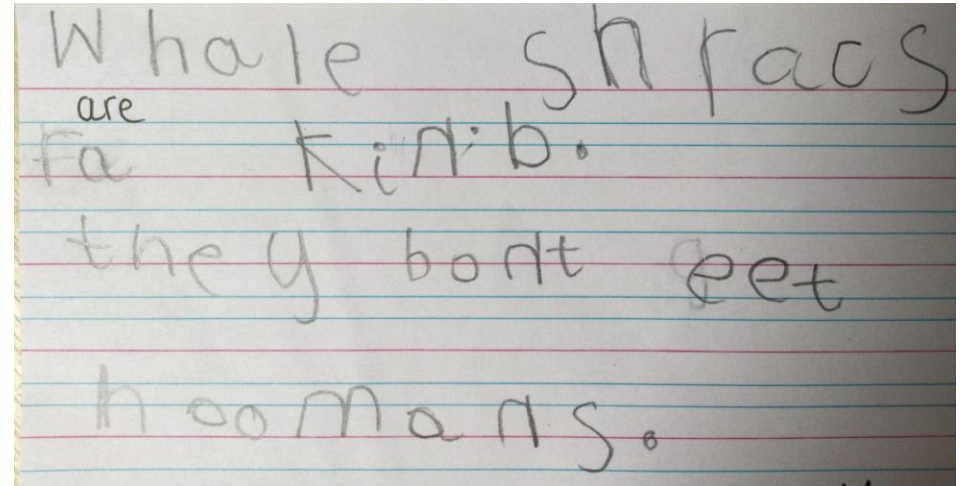 Whale shracs
are
ra kinb.
they bont eet
hoomans.